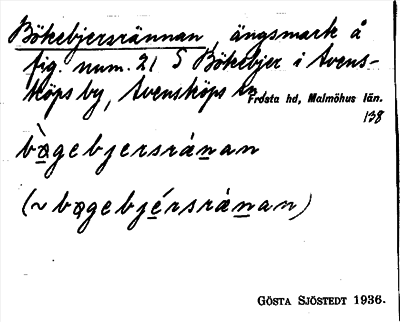 Bökebjersrännan, ängsmark å
fig. num. 21 S Bökebjer i Svens-
köps by, Svensköps sn
Frosta hd, Malmöhus län.
138
bøgebjersránan
(~ bøgebjérsránan)
GÖSTA SJÖSTEDT 1936.